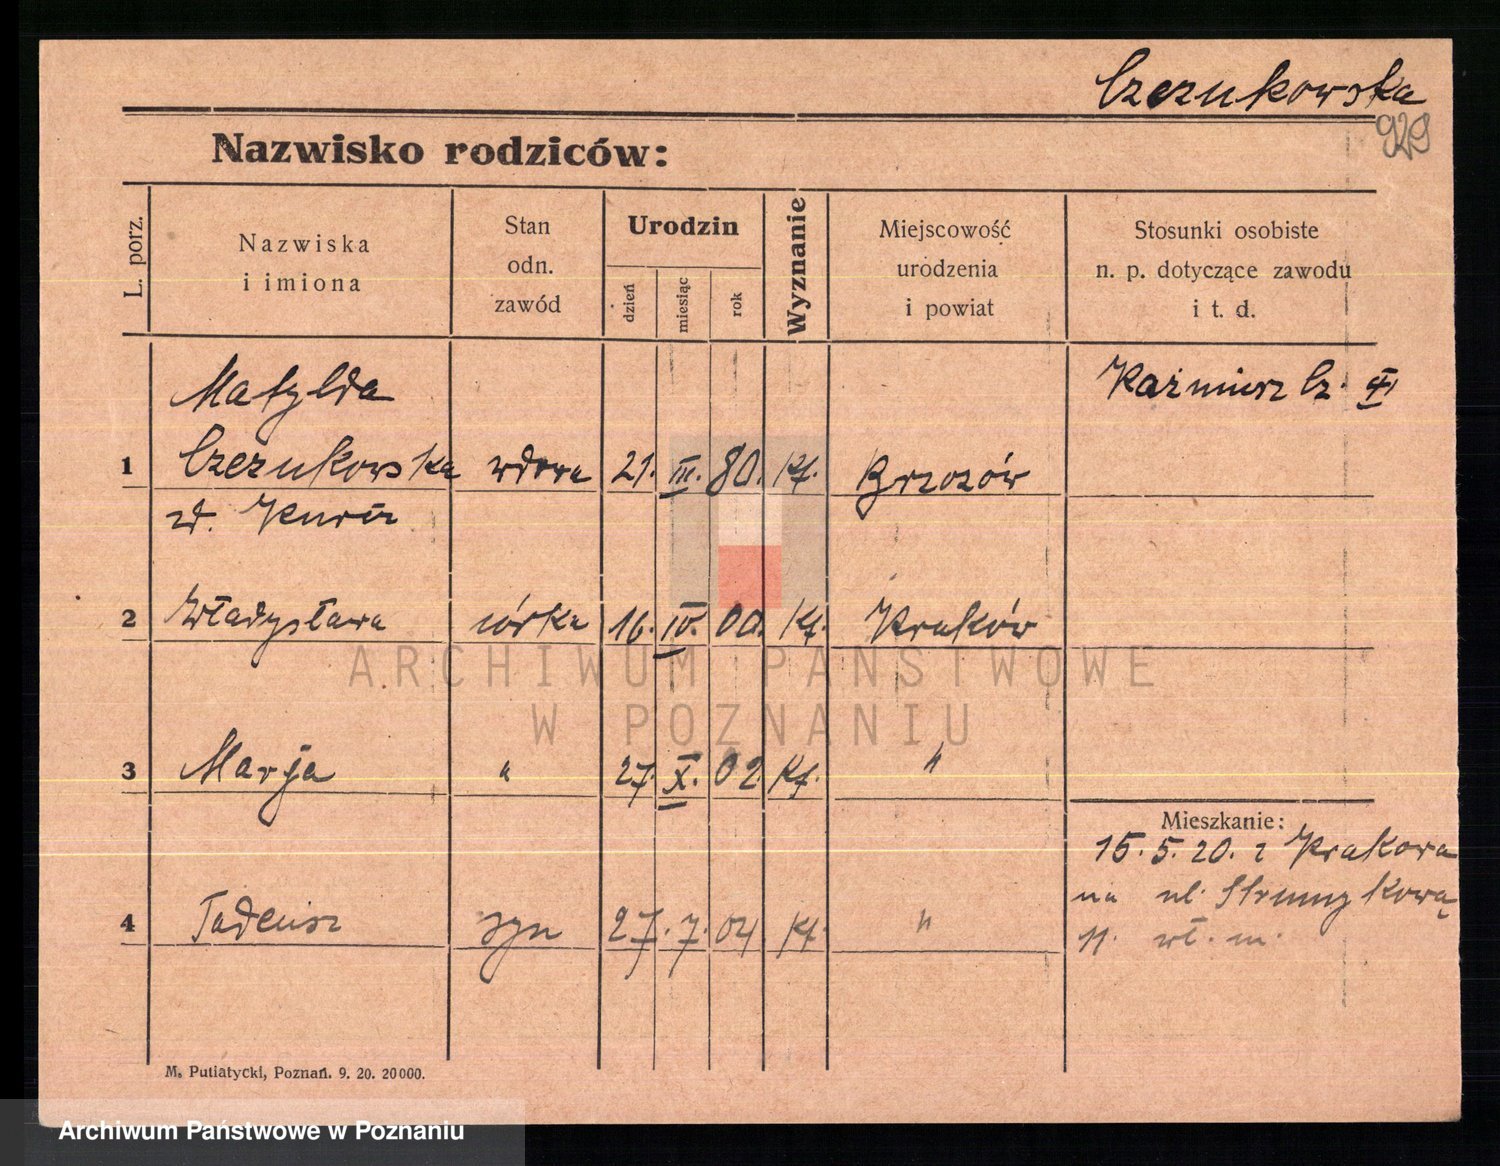 Czezukowska
929
Nazwisko rodziców:
L. porz.
Nazwiska
i imiona
Stan
odn.
zawód
Urodzin
dzień
miesiąc
rok
Wyznanie
Miejscowość
urodzenia
i powiat
Stosunki osobiste
n. p. dotyczące zawodu
i t. d.
Matylda
Kaźmierz Cz.
1 Czezukowska wdowa 21. III. 80. Kt. Brzozów
zd.
2 Władysława córka 16. IV. 00. Kt. Kraków
ARCHIWUM PAŃSTWOWE
W POZNANIU
3 Marja " 27. X. 02. Kt. "
Mieszkanie:
15. 5. 20. z Krakowa
na ul.
4 Tadeusz syn 27. 7. 04 Kt. "
11. wł. m.
M. Putiatycki, Poznań. 9. 20. 20000.
Archiwum Państwowe w Poznaniu